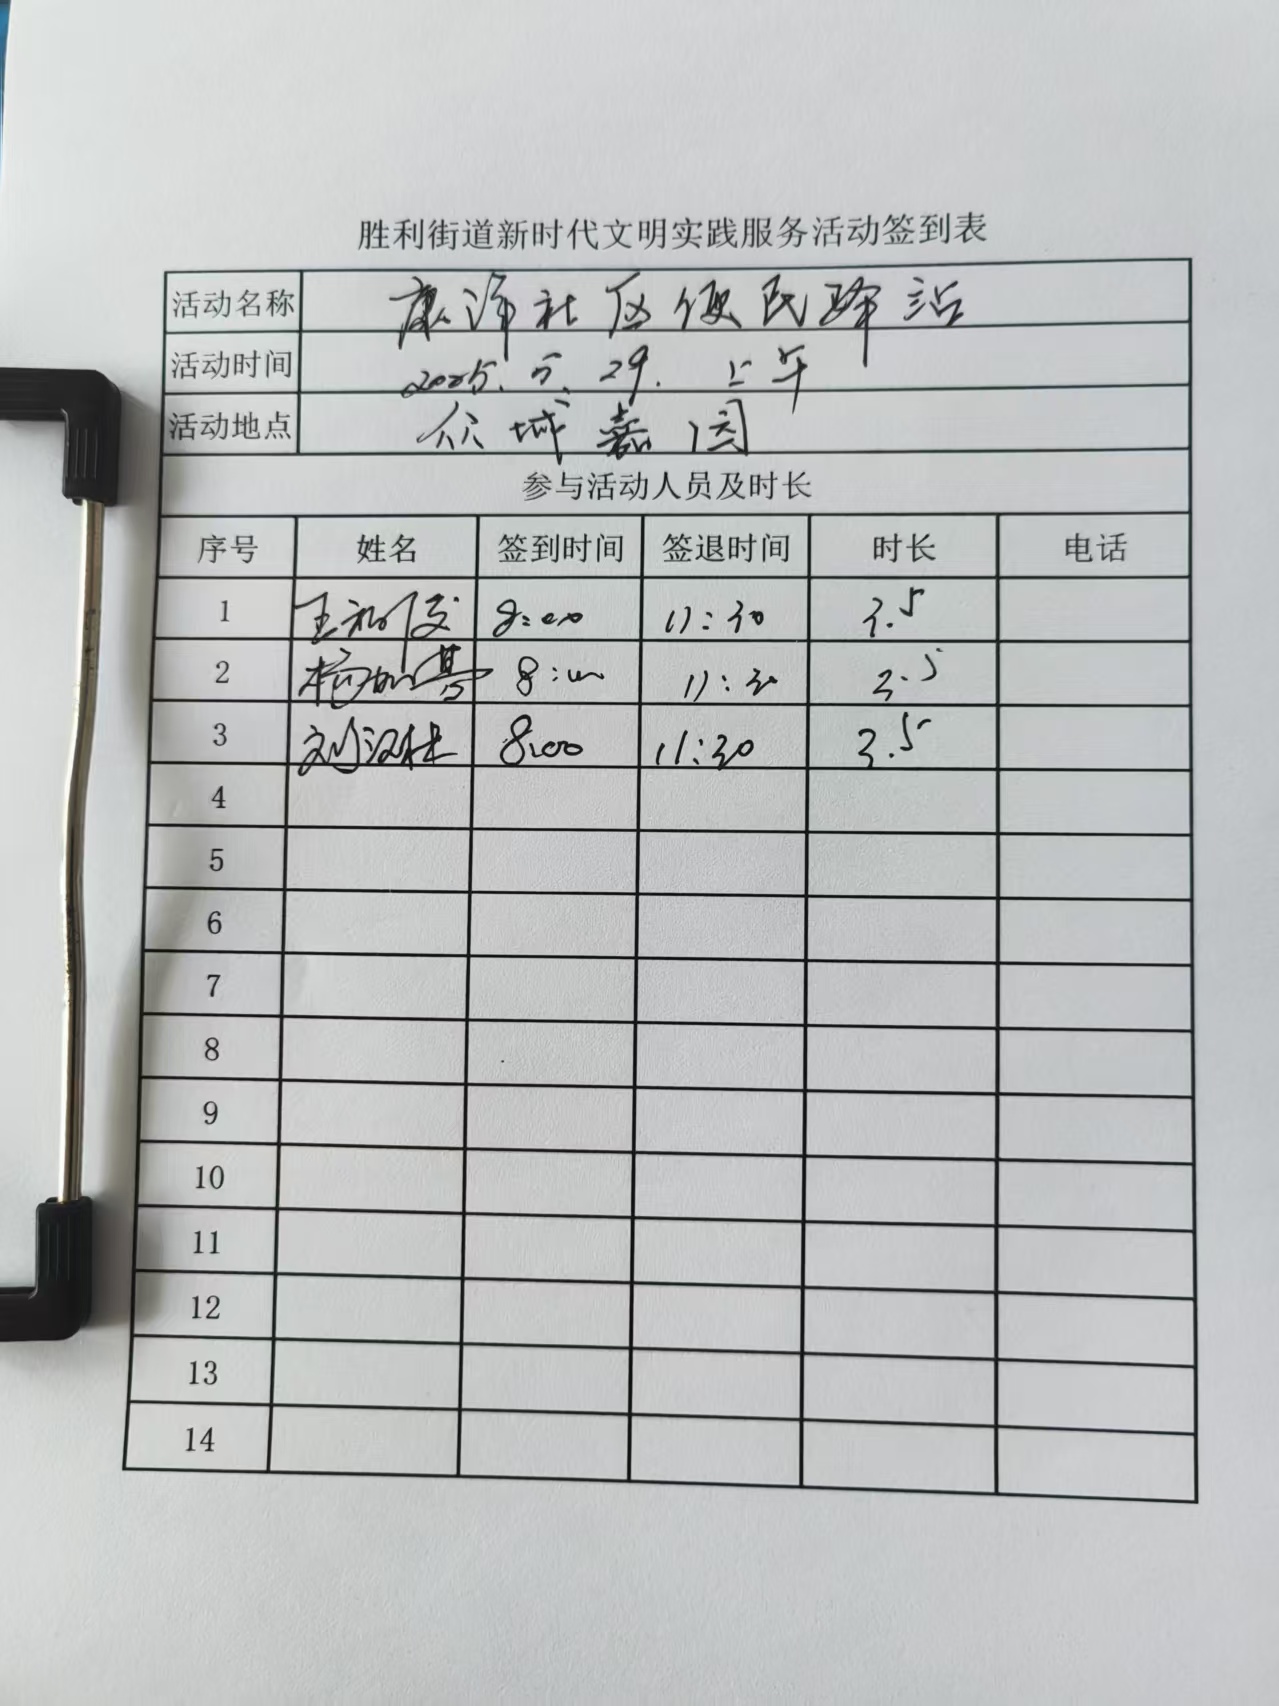 胜利街道新时代文明实践服务活动签到表
活动名称 康泽社区便民驿站
活动时间 2025.5.29. 上午
活动地点 众城嘉园
参与活动人员及时长
序号 姓名 签到时间 签退时间 时长 电话
1 王 8:00 11:30 3.5
2 杨 8:00 11:30 3.5
3 刘汉林 8:00 11:30 3.5
4
5
6
7
8
9
10
11
12
13
14